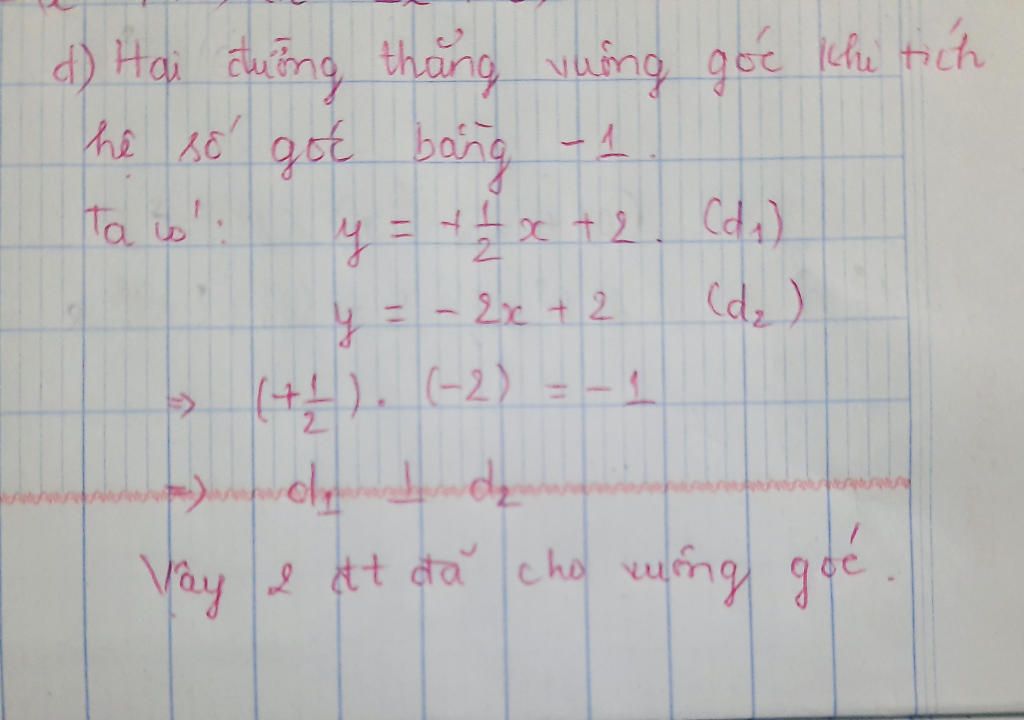 d) Hai đường thẳng vuông góc khi tích
hệ số góc bằng -1.
Ta có: y = +1/2 x + 2. (d1)
y = -2x + 2 (d2)
=> (+1/2). (-2) = -1
=> d1 ⊥ d2
Vậy 2 đt đã cho vuông góc.